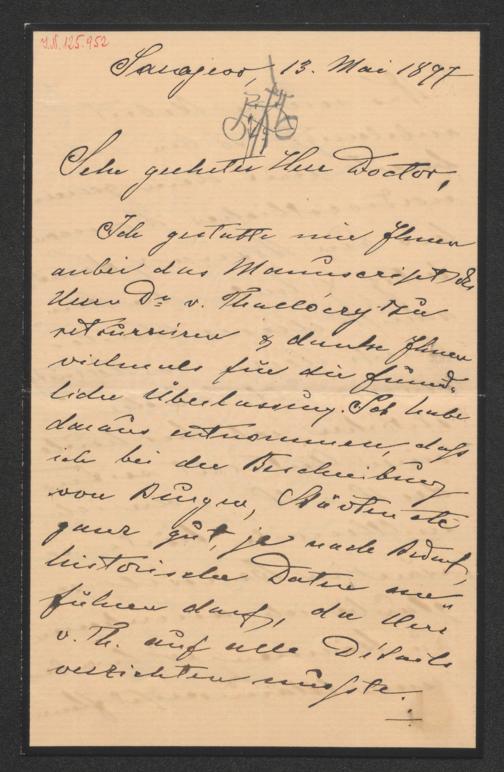 I.N. 125.952
Sarajevo, 13. Mai 1897
Sehr geehrter Herr Doctor,
Ich gestatte mir Ihnen
anbei das Manuscript des
Herrn Dr v. Thallóczy zu
retourniren & danke Ihnen
vielmals für die freund-
liche Überlassung. Ich habe
daraus entnommen, dass
ich bei der Beschreibung
von Burgen, Städten etc
ganz gut, je nach Bedarf,
historische Daten an-
führen darf, da Herr
v. Th. auf alle Details
verzichten musste.